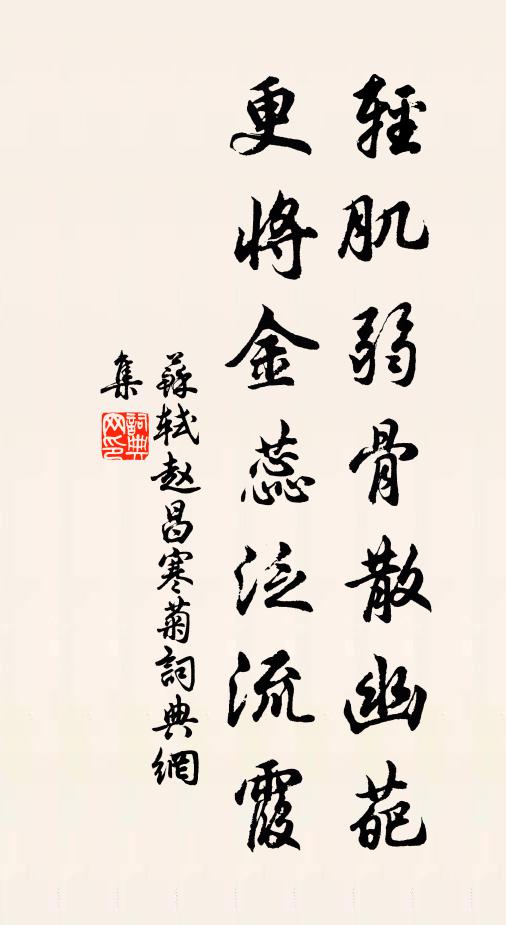 輕肌弱骨散幽葩
更將金蕊泛流霞
蘇軾赵昌寒菊詞典網
集
詞典网印